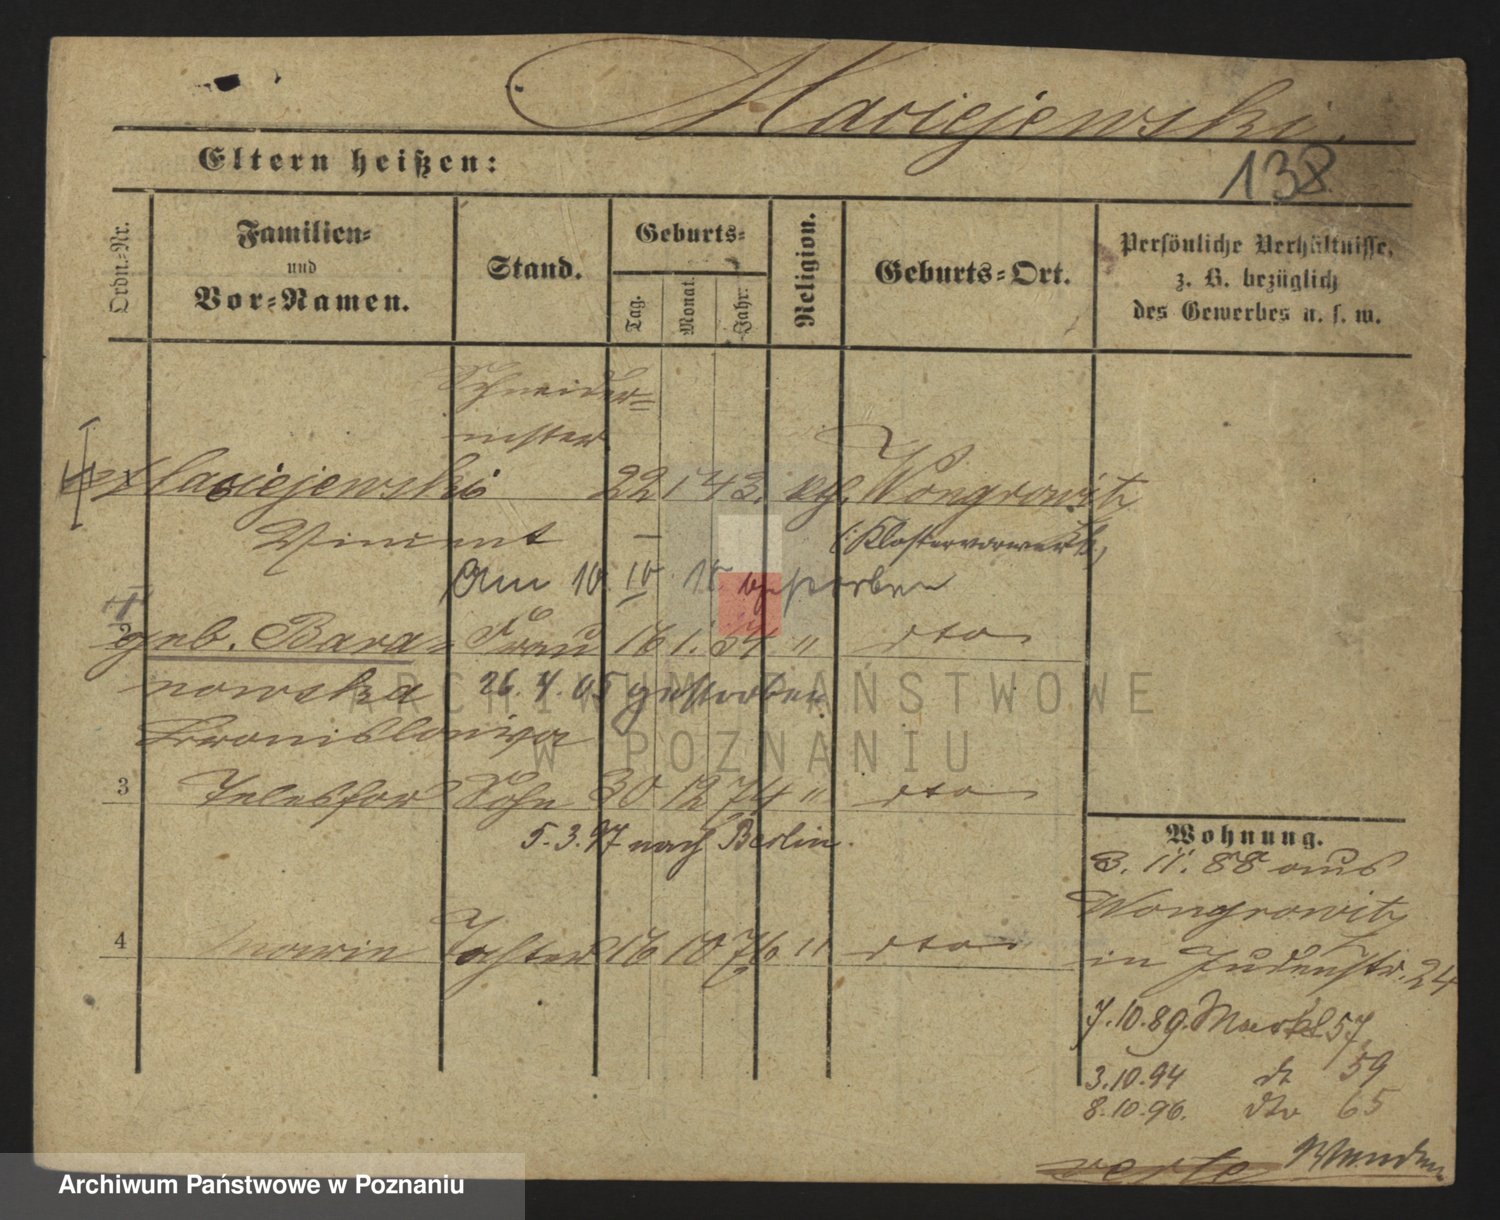 Maciejewski.
138
Eltern heißen:
Ordn.-Nr.
Familien-
und
Vor-Namen.
Stand.
Geburts-
Tag.
Monat.
Jahr.
Religion.
Geburts-Ort.
Persönliche Verhältnisse,
z. B. bezüglich
des Gewerbes u. s. w.
Schneider-
mster
Maciejewski 22 1 43. kth. Wongrowitz
Vincent (Klostervorwerk)
Am 10 IV gestorben
2 geb. Bara- Frau 16 1. 54 " dto
nowska 26. 4. 05 gestorben
Bronislawa
3 Telesfor Sohn 30 12 74 " dto
5. 3. 97 nach Berlin.
4 Marie Tochter 16 10 76 " dto
Wohnung.
3. 11. 88 aus
Wongrowitz
in Judenstr. 24
7.10.89. Markt 57
3.10.94 dt 59
8.10.96. dto 65
verte Wenden
ARCHIWUM PAŃSTWOWE
W POZNANIU
Archiwum Państwowe w Poznaniu